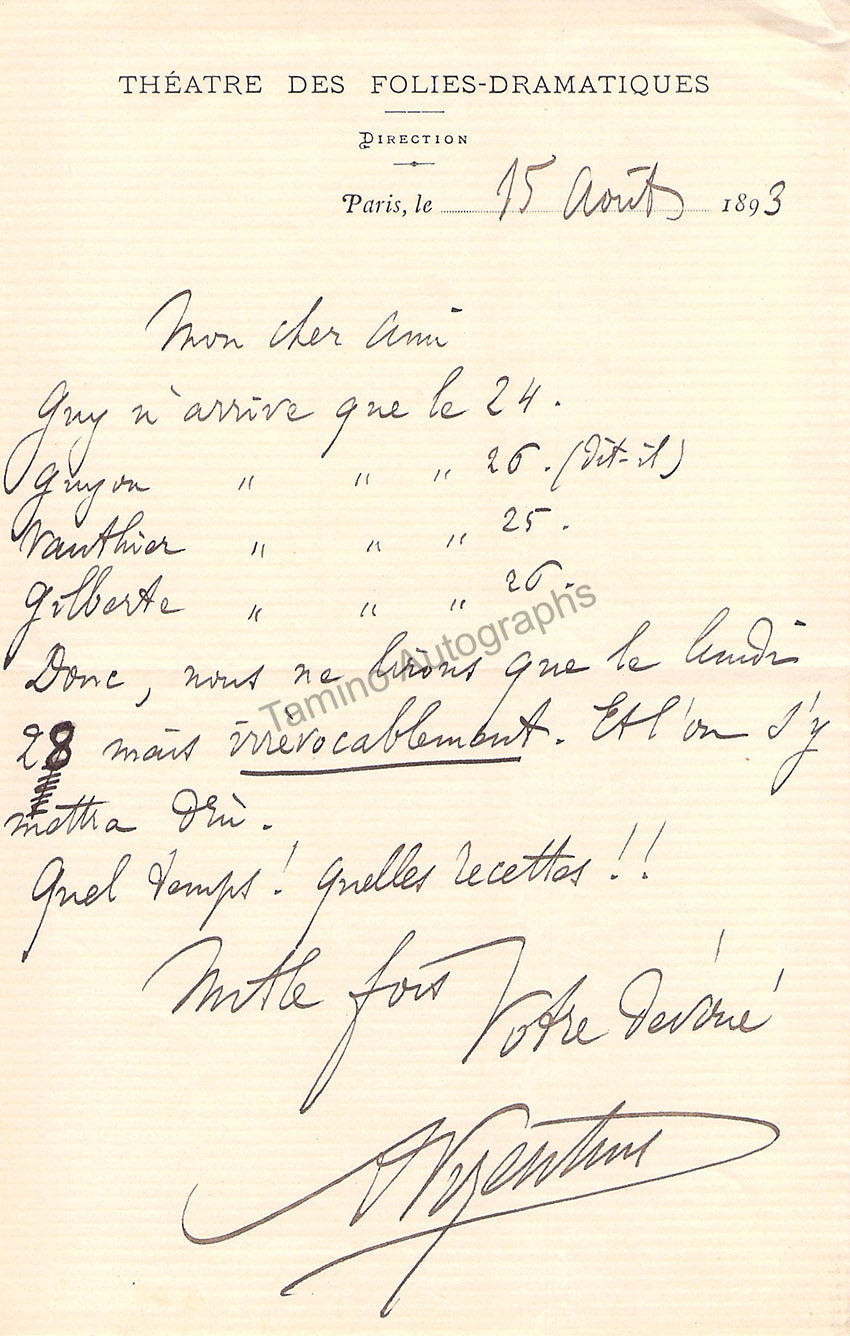 THÉATRE DES FOLIES-DRAMATIQUES
DIRECTION
Paris, le 15 Août 1893
Mon cher ami
Guy n'arrive que le 24.
Guyon " " " 26. (dit-il)
Vauthier " " " 25.
Gilberte " " " 26.
Donc, nous ne lirons que le lundi
28 mais irrévocablement. Et l'on s'y
mettra dru.
Quel temps! quelles recettes!!
Mille fois
Votre dévoué
Vizentini
Tamino Autographs